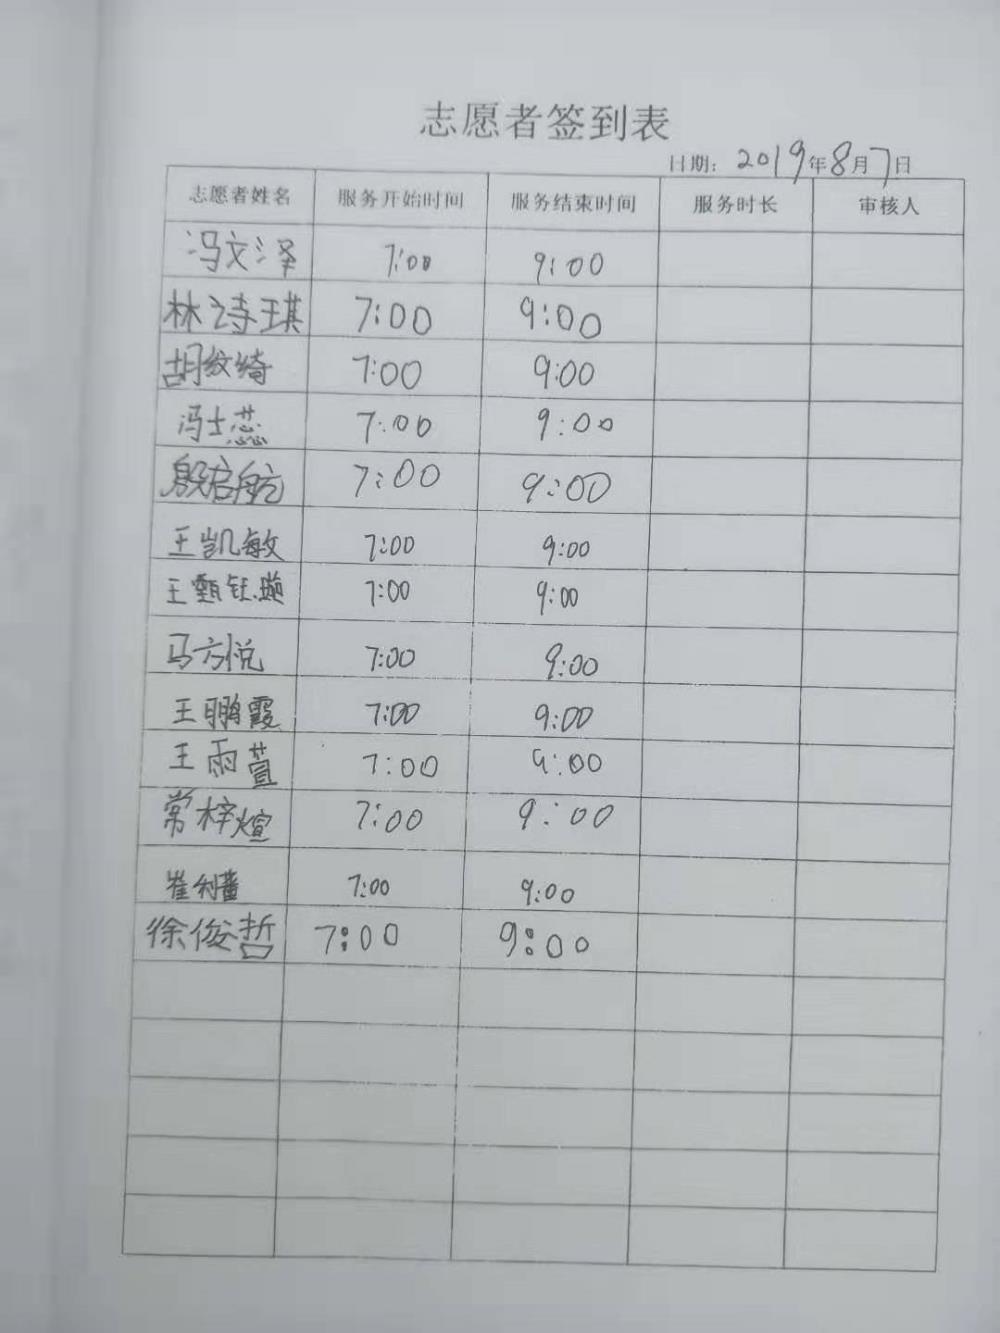 志愿者签到表
日期：2019年8月7日
志愿者姓名 服务开始时间 服务结束时间 服务时长 审核人
冯文泽 7:00 9:00
林诗琪 7:00 9:00
胡纹绮 7:00 9:00
冯士蕊 7:00 9:00
殷启航 7:00 9:00
王凯敏 7:00 9:00
王甄钰璇 7:00 9:00
马方悦 7:00 9:00
王鹏霞 7:00 9:00
王雨萱 7:00 9:00
常梓煊 7:00 9:00
崔利 7:00 9:00
徐俊哲 7:00 9:00